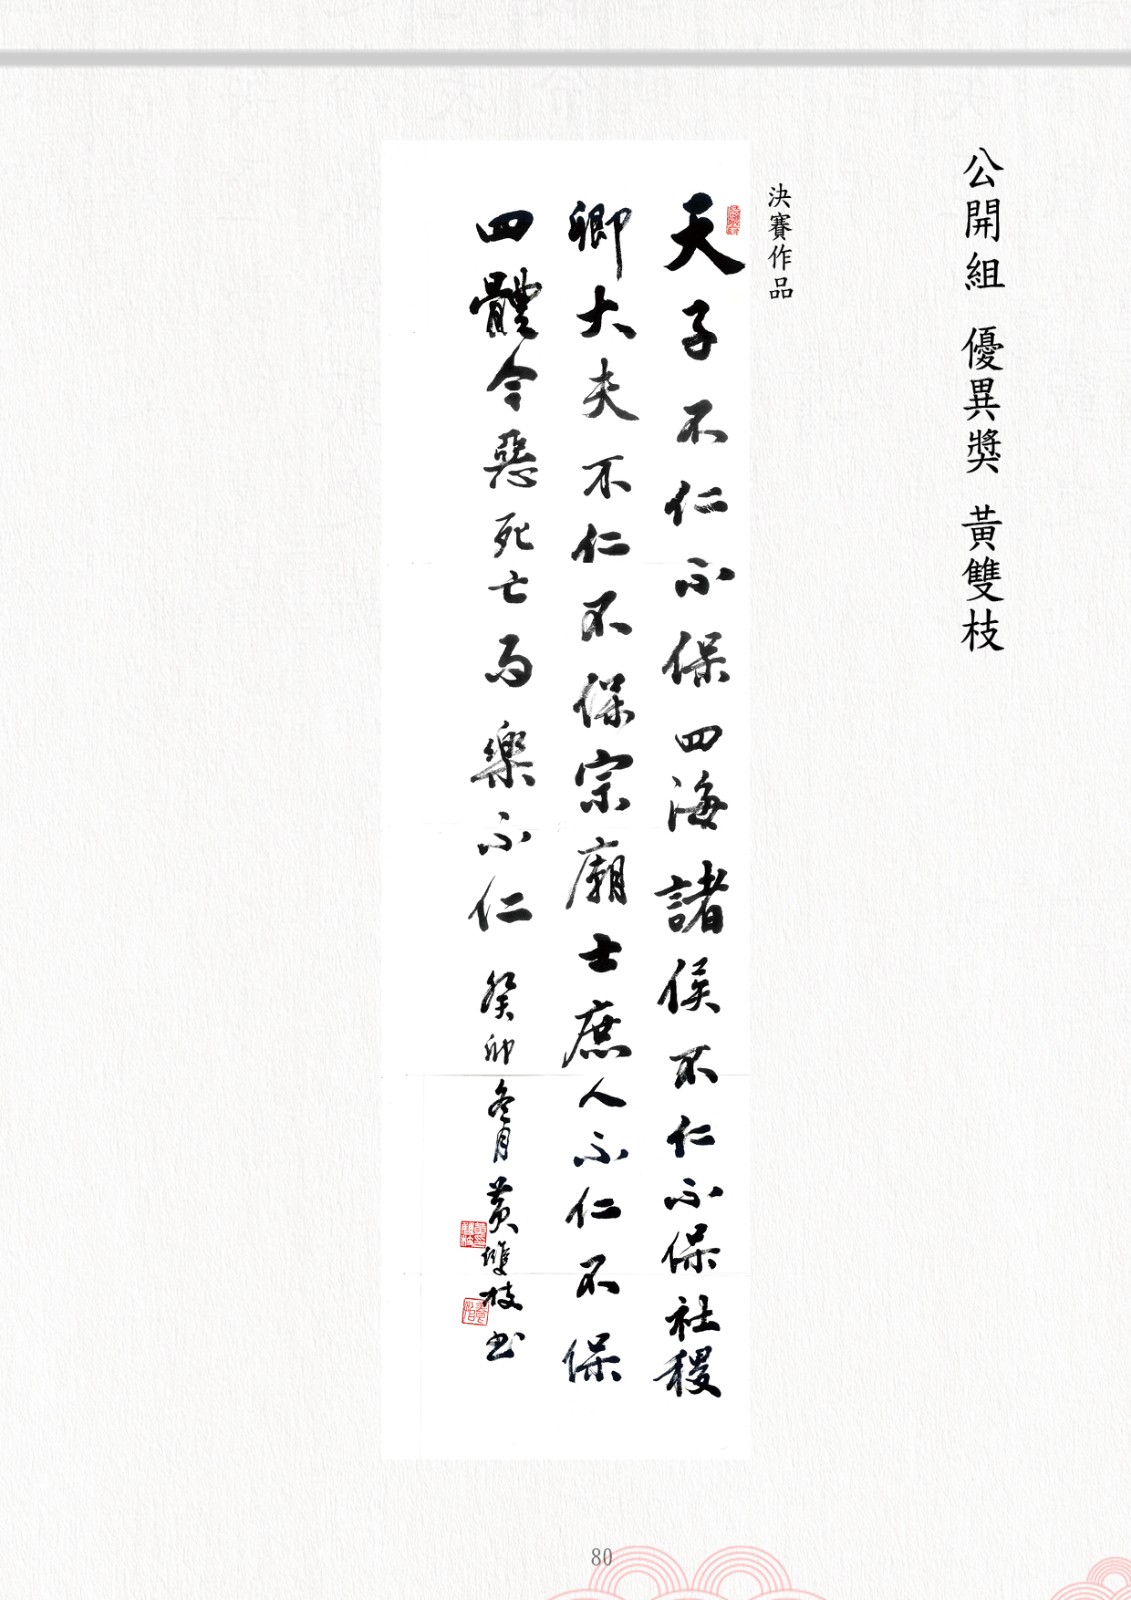 公開組 優異獎 黃雙枝
決賽作品
天子不仁不保四海諸侯不仁不保社稷
卿大夫不仁不保宗廟士庶人不仁不保
四體今惡死亡而樂不仁 癸卯冬月黃雙枝书
80